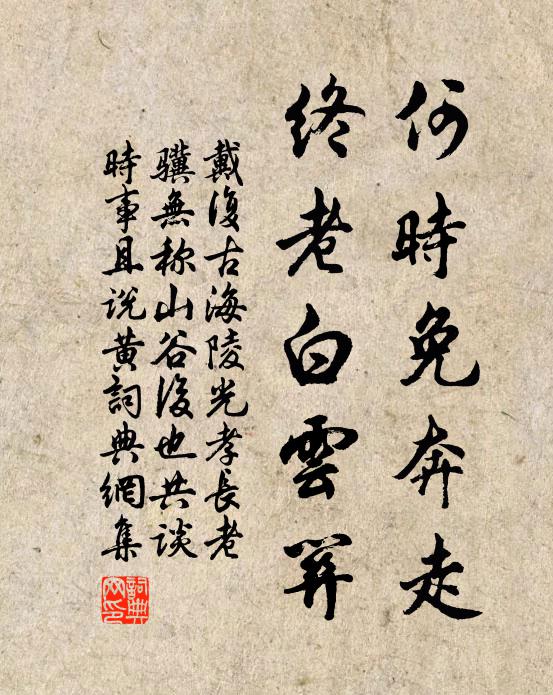 何時免奔走
終老白雲
戴復古海陵光孝長老
驥無称山谷後也共談
時事且説黄詞典網集
詞典
网印